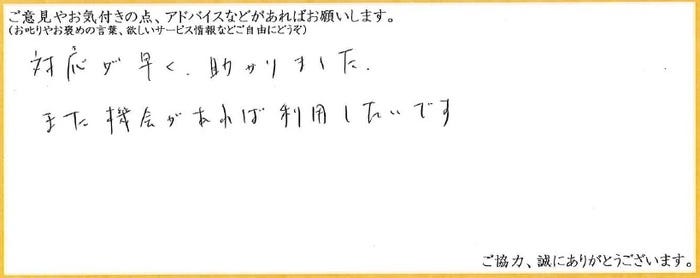 ご意見やお気付きの点、アドバイスなどがあればお願いします。
(お叱りやお褒めの言葉、欲しいサービス情報などご自由にどうぞ)
対応が早く、助かりました。
また機会があれば利用したいです
ご協力、誠にありがとうございます。